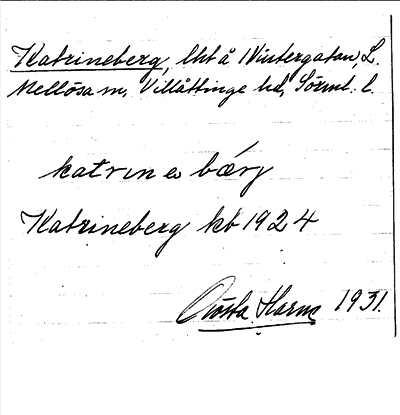 Katrineberg, lht å Wintergatan, L.
Mellösa sn, Villåttinge hd, Sörml. l.
katrın ə bærj
Katrineberg kb 1924
Gösta Harne 1931.